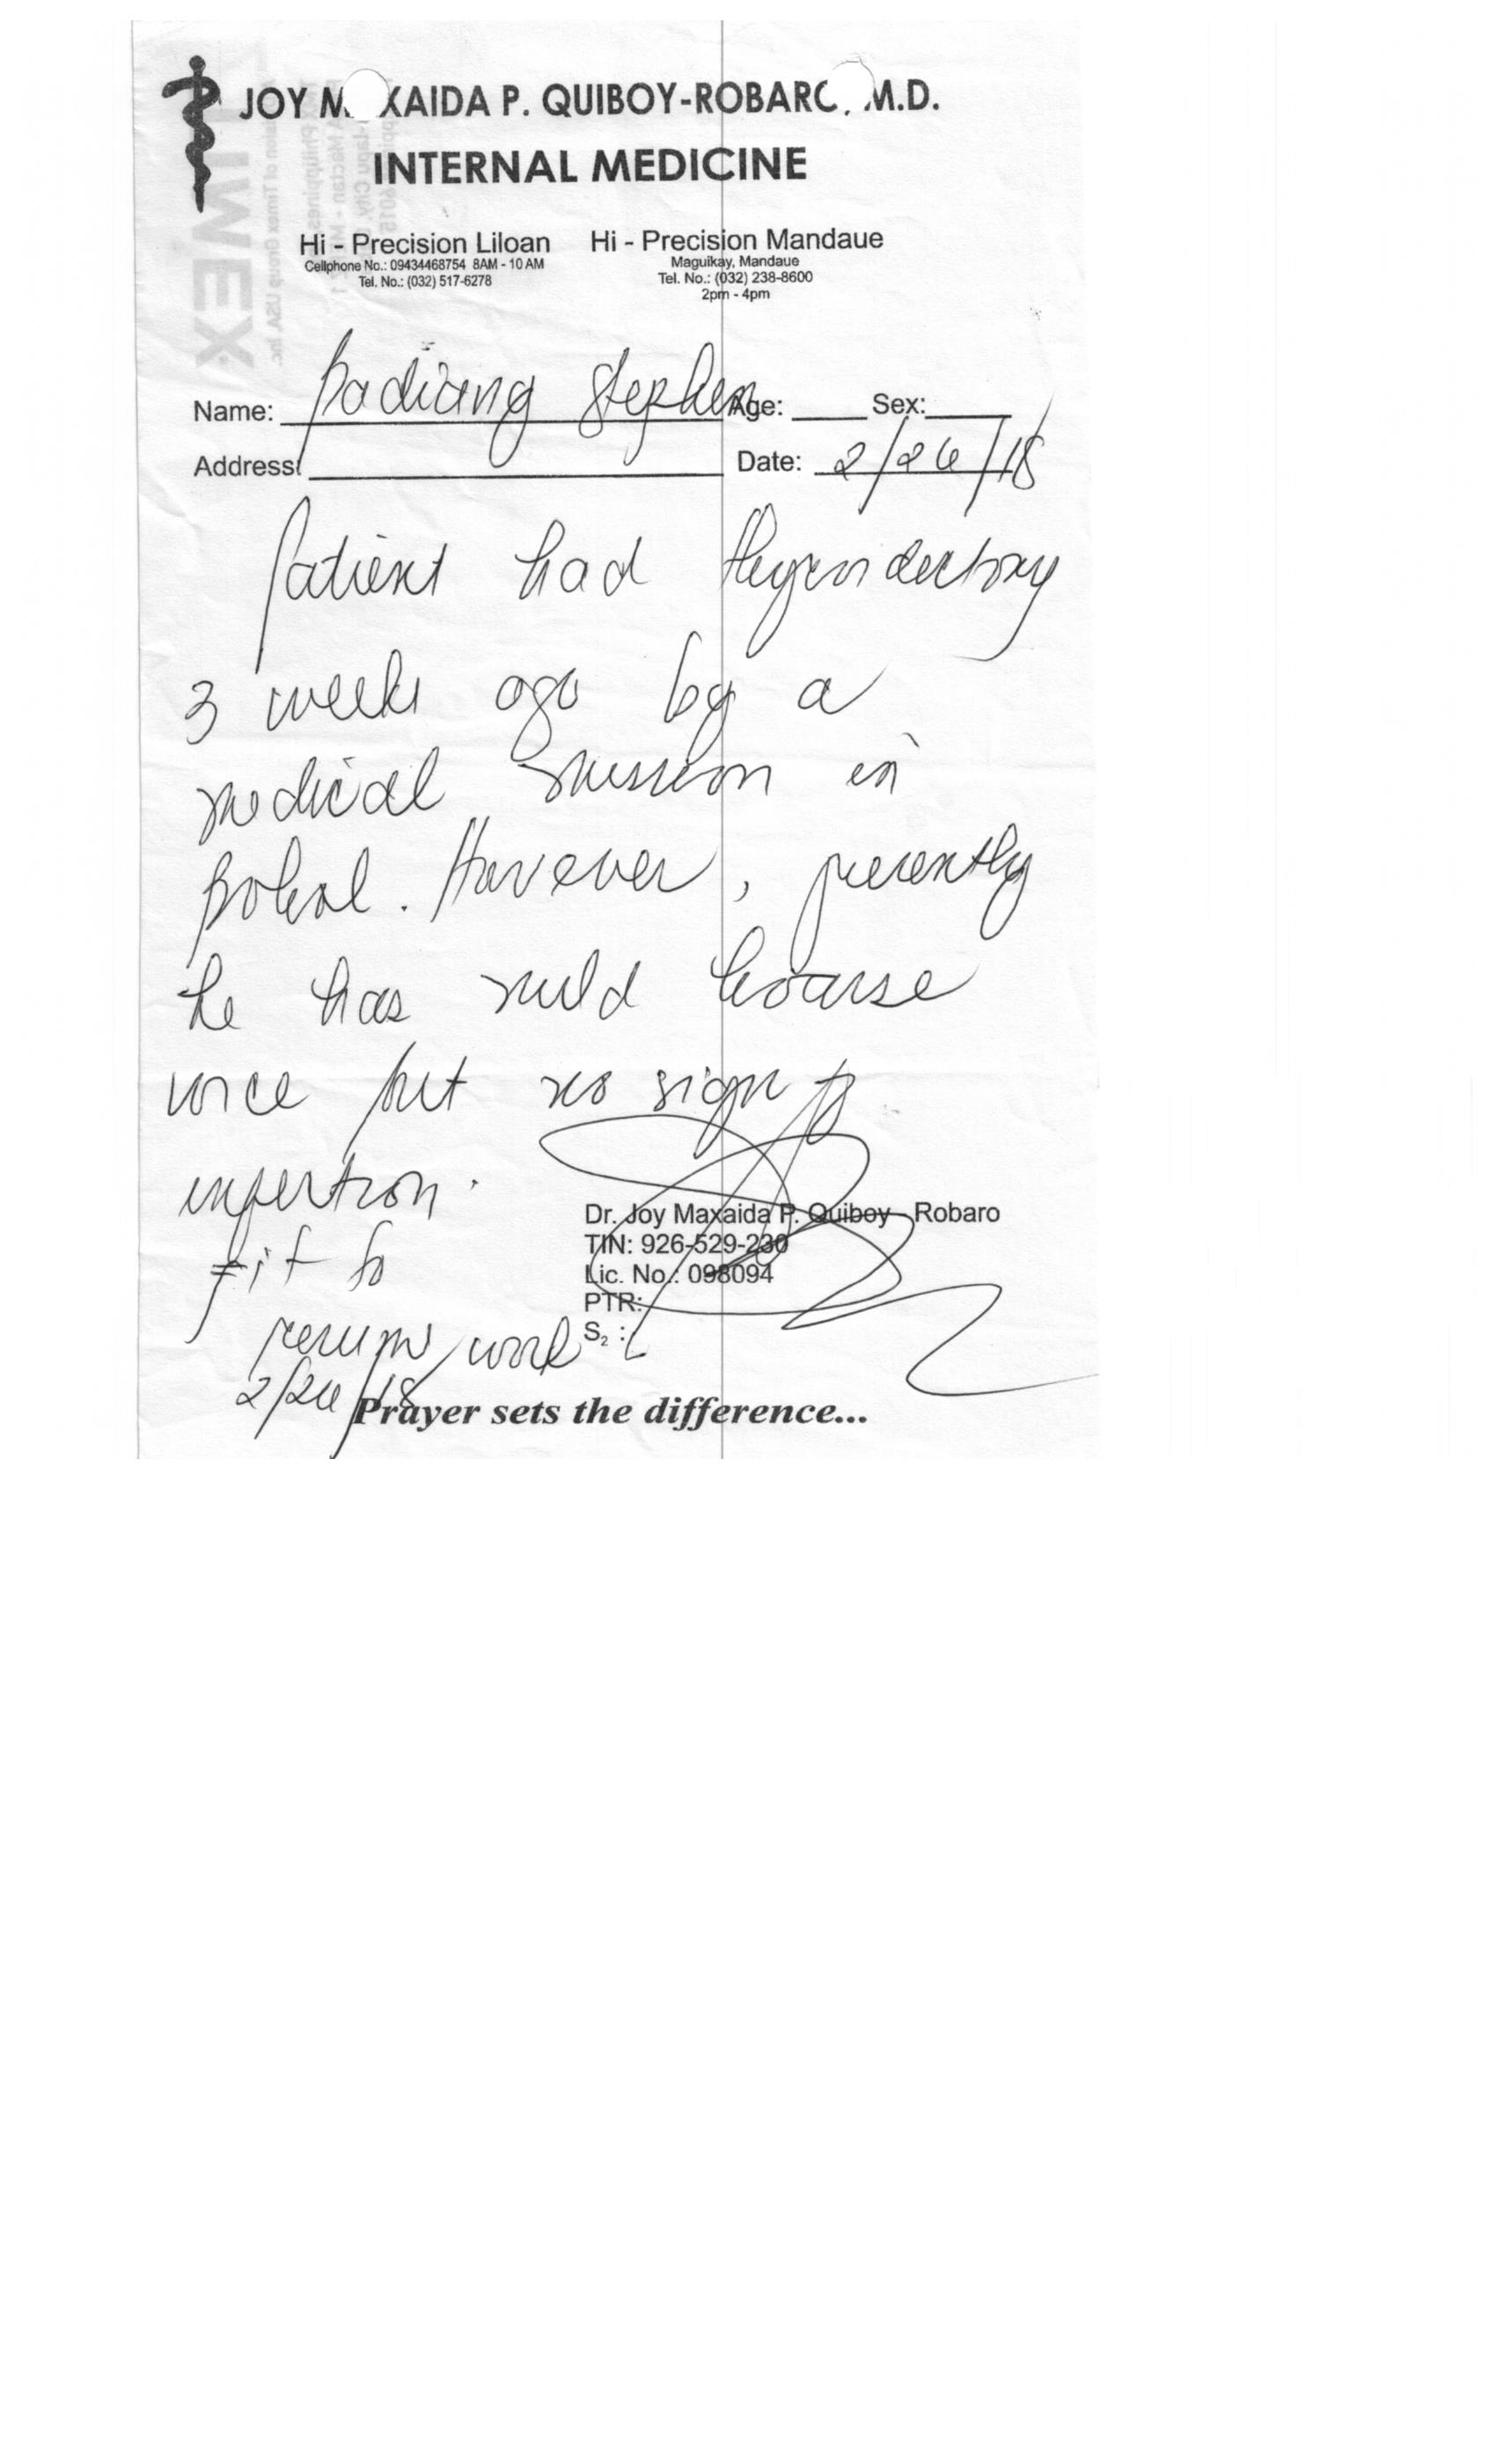 JOY M XAIDA P. QUIBOY-ROBARO, M.D.
INTERNAL MEDICINE
Hi - Precision Liloan
Cellphone No.: 09434468754 8AM - 10 AM
Tel. No.: (032) 517-6278
Hi - Precision Mandaue
Maguikay, Mandaue
Tel. No.: (032) 238-8600
2pm - 4pm
Name: Badiang Stephen Age: Sex:
Address: Date: 2/26/18
Patient had thyroidectomy
3 weeks ago by a
medical mission in
Bohol. However, presently
he has mild hoarse
voice but no sign of
infection.
Fit to
resume work
2/26/18
Dr. Joy Maxaida P. Quiboy - Robaro
TIN: 926-529-230
Lic. No.: 098094
PTR:
S₂ :
Prayer sets the difference...
TIMEX